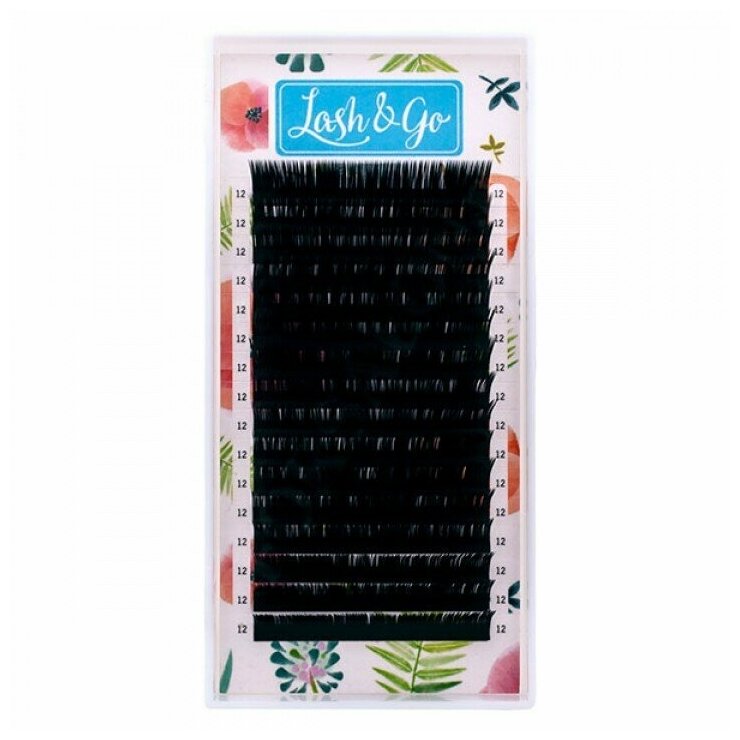 Lash & Go
12 12
12 12
12 12
12 12
12 12
12 12
12 12
12 12
12 12
12 12
12 12
12 12
12 12
12 12
12 12
12 12